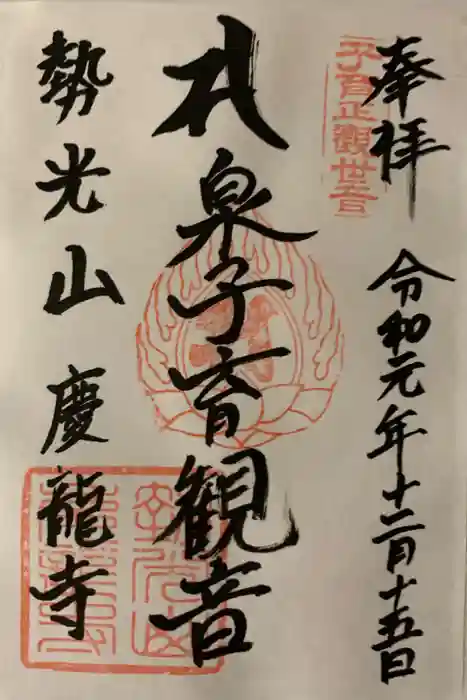 奉拝 令和元年十二月十五日
子育正觀世音
札泉子育観音
勢光山慶龍寺